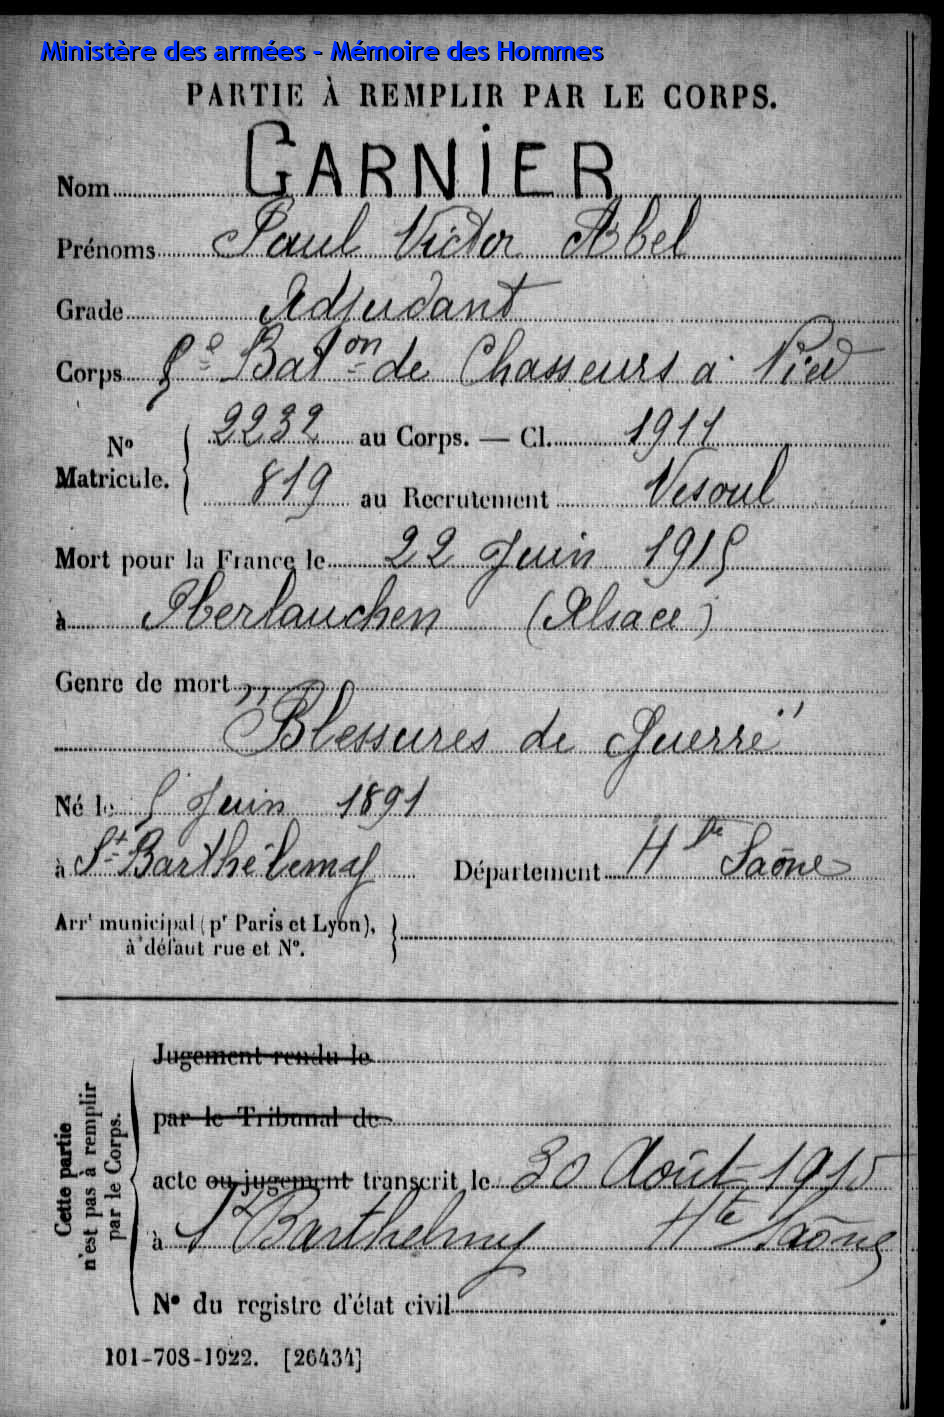 Ministère des armées - Mémoire des Hommes
PARTIE À REMPLIR PAR LE CORPS.
Nom GARNIER
Prénoms Paul Victor Abel
Grade Adjudant
Corps 5e Baton de Chasseurs à Pied
No Matricule. { 2232 au Corps. — Cl. 1911
819 au Recrutement Vesoul
Mort pour la France le 22 Juin 1915
à Oberlauchen (Alsace)
Genre de mort
"Blessures de Guerre"
Né le 5 Juin 1891
à St Barthélemy Département Hte Saône
Arrt municipal (pr Paris et Lyon), }
à défaut rue et No.
Cette partie n'est pas à remplir par le Corps.
Jugement rendu le
par le Tribunal de
acte ou jugement transcrit le 30 Août 1915
à St Barthelmy Hte Saône
No du registre d'état civil
101-708-1922. [26434]